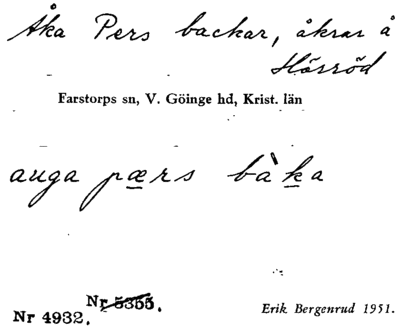 Åka Pers backar, åkrar å
Hörröd
Farstorps sn, V. Göinge hd, Krist. län
auga pærs bàka
Nr 5355.
Nr 4932.
Erik Bergenrud 1951.